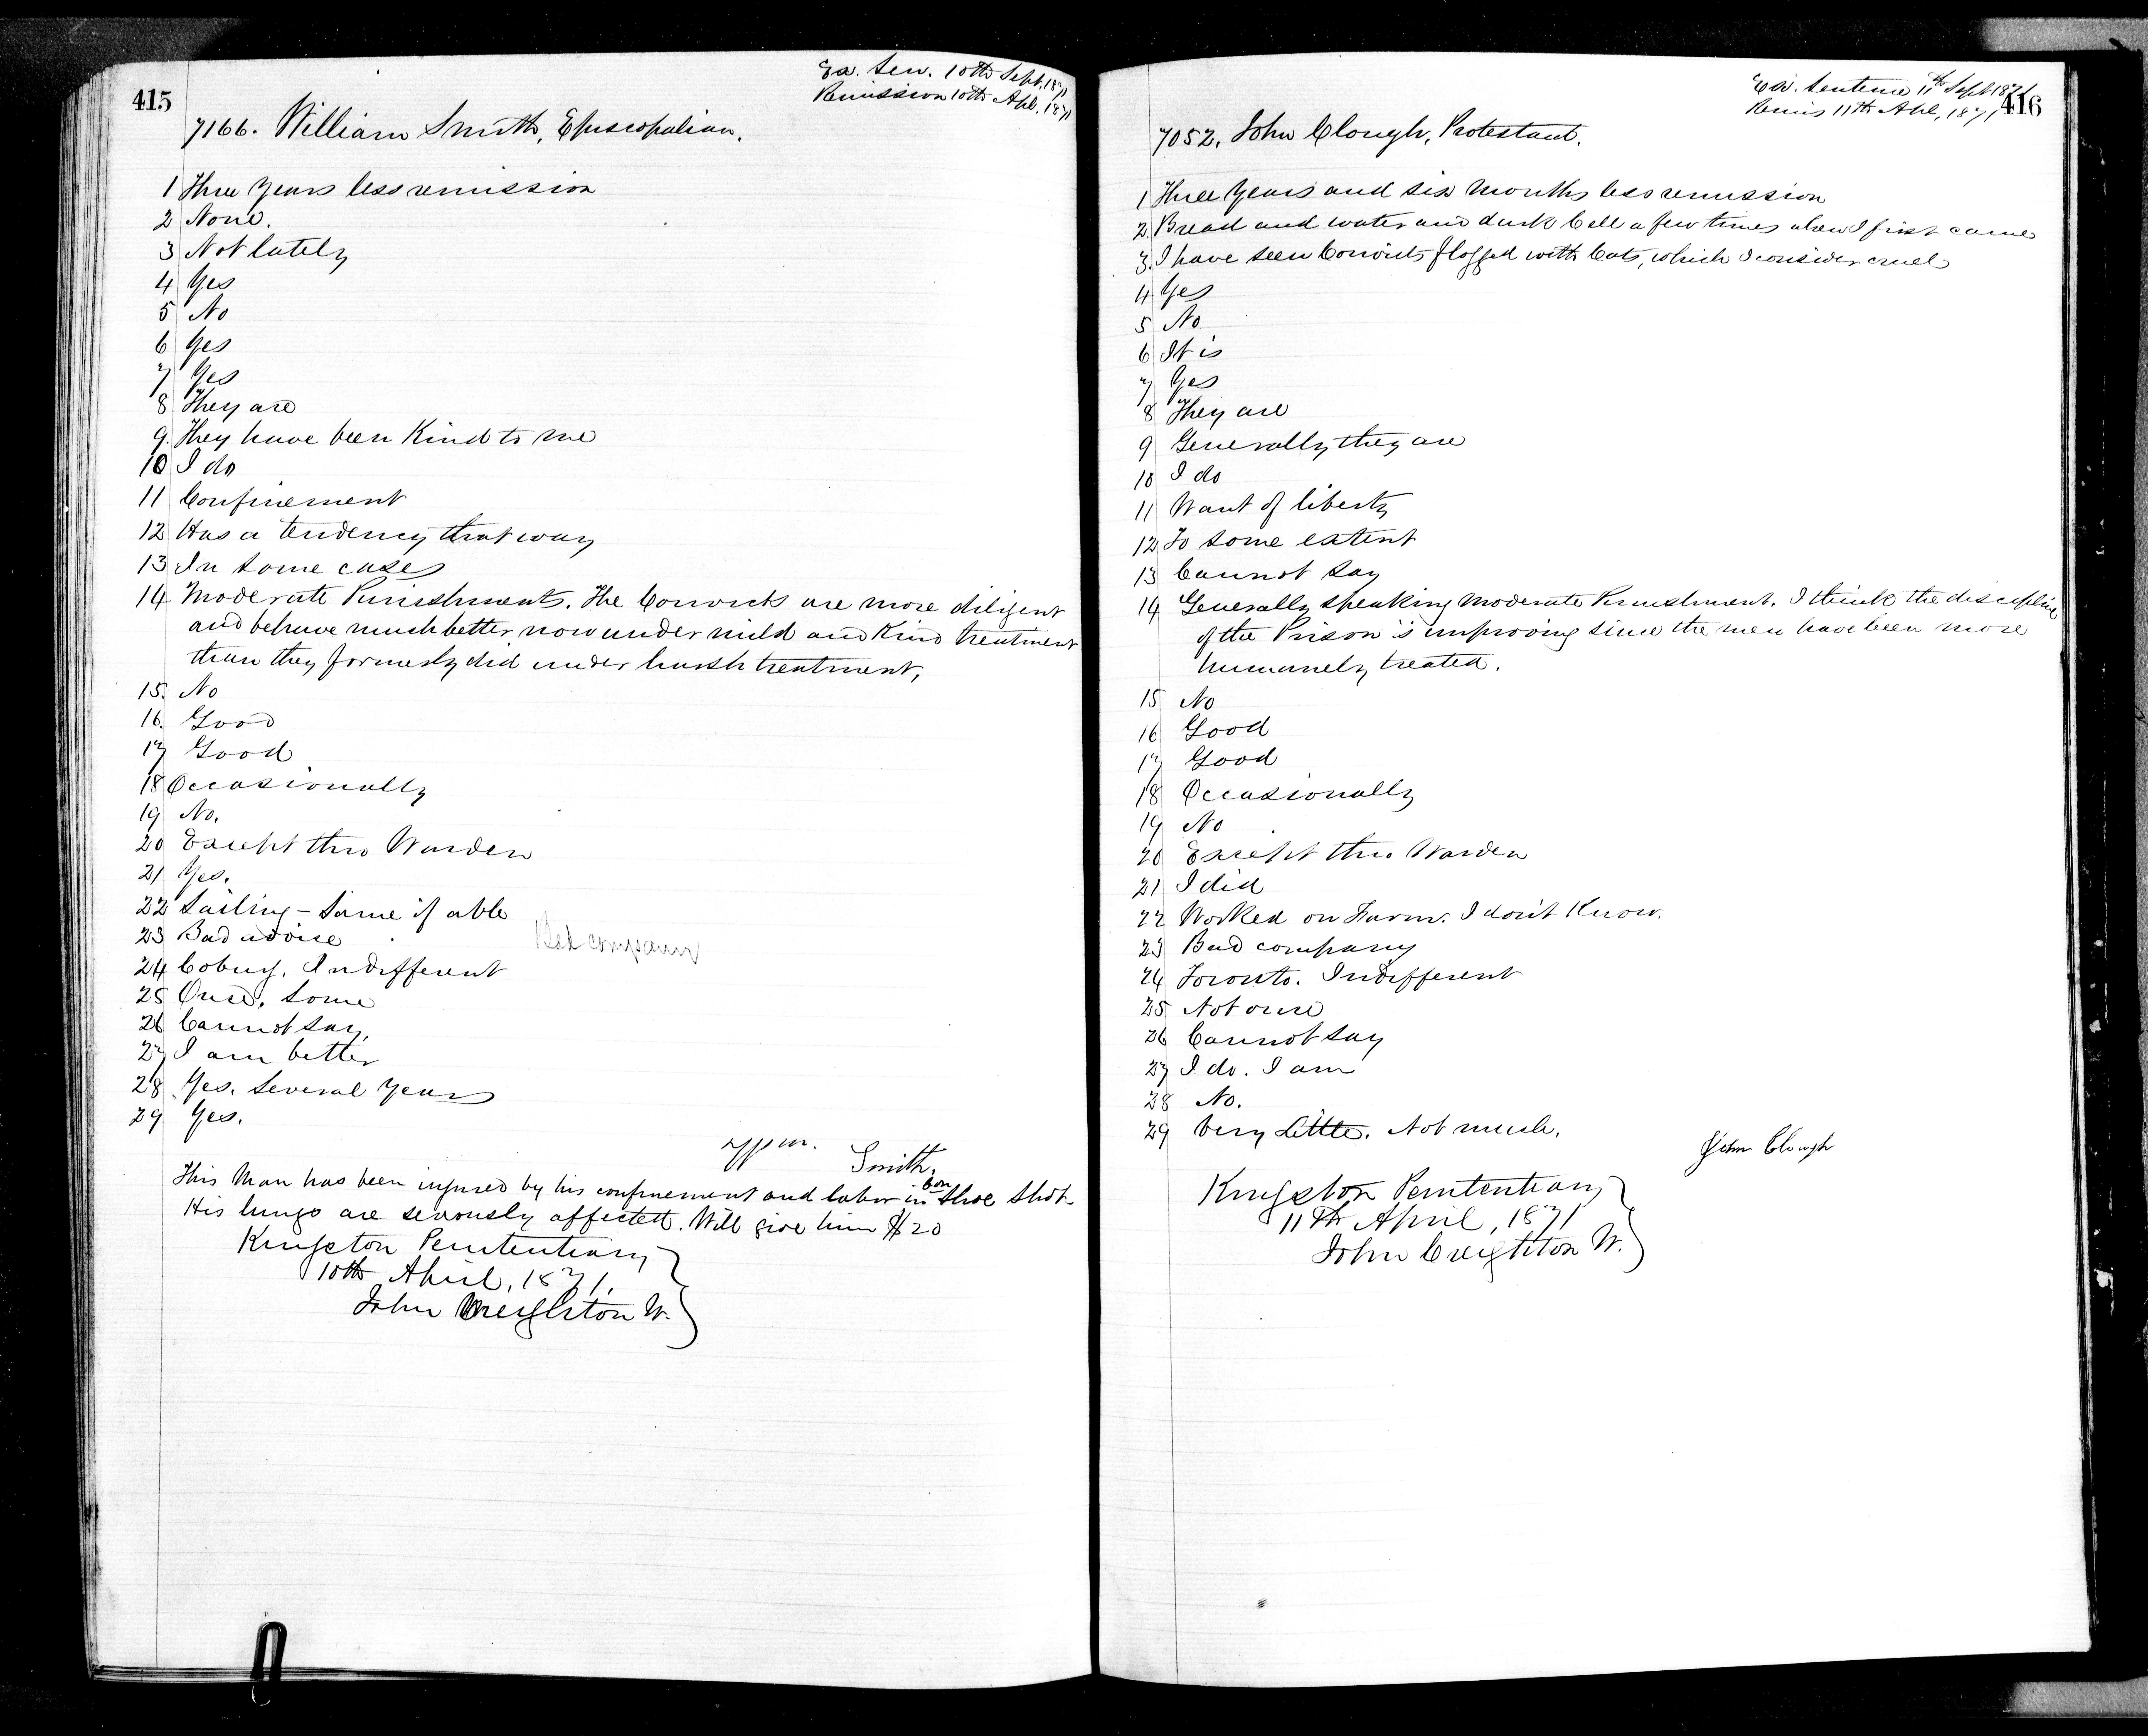 415
Ex. Sen. 10th Sept, 1871
Remission 10th Apl. 1871
7166. William Smith, Episcopalian.
1 Three Years less remission
2 None.
3 Not lately
4 Yes
5 No
6 Yes
7 Yes
8 They are
9. They have been Kind to me
10 I do
11 Confinement
12 Has a tendency that way
13 In some cases
14 Moderate Punishments. The Convicts are more diligent
and behave much better now under mild and Kind treatment
than they formerly did under harsh treatment,
15. No
16. Good
17 Good
18 Occasionally
19 No.
20 Except thro Warden
21 Yes.
22 Sailing - Same if able
23 Bad advice Bad company
24 Cobug. Indifferent
25 Once. Some
26 Cannot say,
27 I am better
28 Yes. Several Years
29 Yes.
Wm. Smith.
This Man has been injured by his confinement and labor in Con Shoe Shop
His lungs are seriously affected. Will give him $20
Kingston Penitentiary
10th April, 1871.
John Creighton W.
416
Ex. Sentence 11th Sept 1871
Remis 11th Apl, 1871
7052. John Clough, Protestant.
1 Three Years and six Months less remission
2. Bread and water and dark Cell a few times when I first came
3. I have seen Convicts flogged with Cats, which I consider cruel
4 Yes
5 No
6 It is
7 Yes
8 They are
9 Generally they are
10 I do
11 Want of liberty
12 To some extent
13 Cannot say
14 Generally speaking Moderate Punishment. I think the discipline
of the Prison is improving since the men have been more
humanely treated.
15 No
16 Good
17 Good
18 Occasionally
19 No
20 Except thro. Warden
21 I did
22 Worked on Farm. I don't Know.
23 Bad company
24 Toronto. Indifferent
25 Not once
26 Cannot say
27 I do. I am
28 No.
29 Very Little. Not much.
John Clough
Kingston Penitentiary
11th April, 1871
John Creighton W.